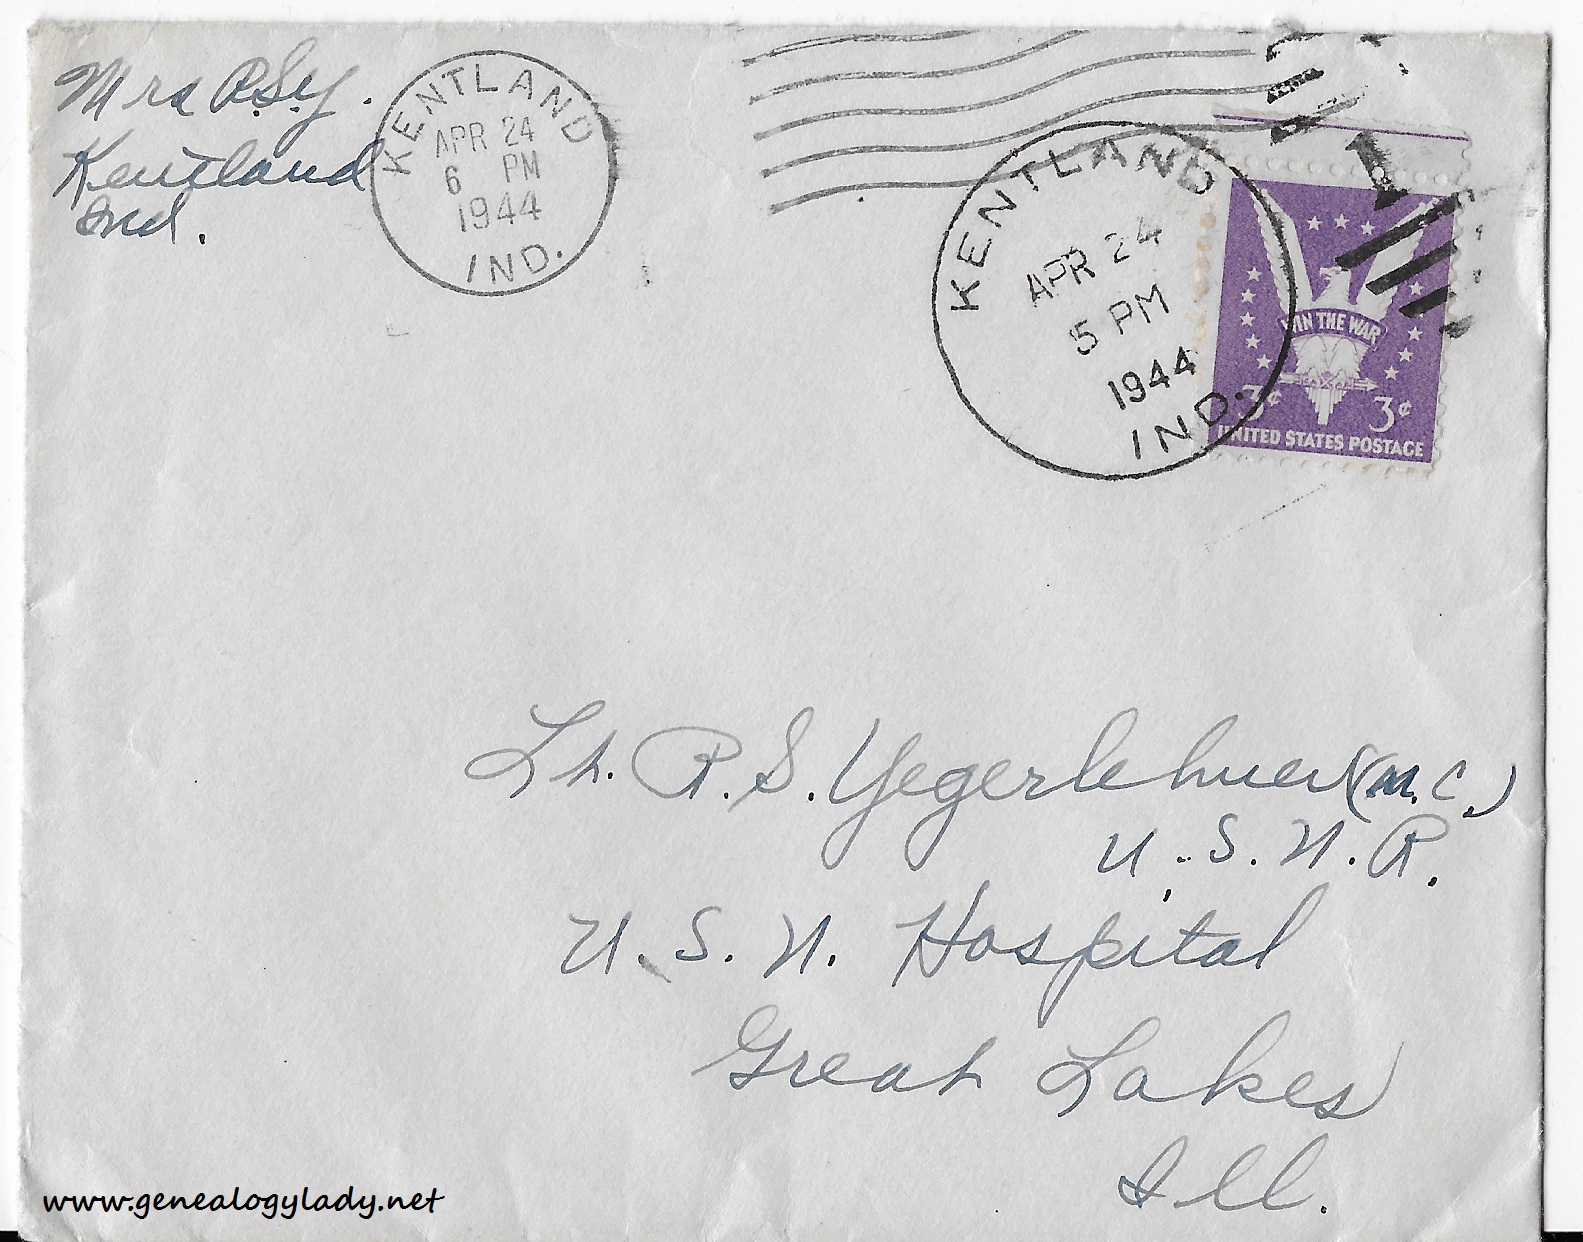 Mrs R.S.Y.
Kentland
Ind.
KENTLAND
APR 24
6 PM
1944
IND.
KENTLAND
APR 24
5 PM
1944
IND.
1
WIN THE WAR
3¢ 3¢
UNITED STATES POSTAGE
Lt. R. S. Yegerlehner (M.C.)
U.S.N.R.
U.S.N. Hospital
Great Lakes
Ill.
www.genealogylady.net